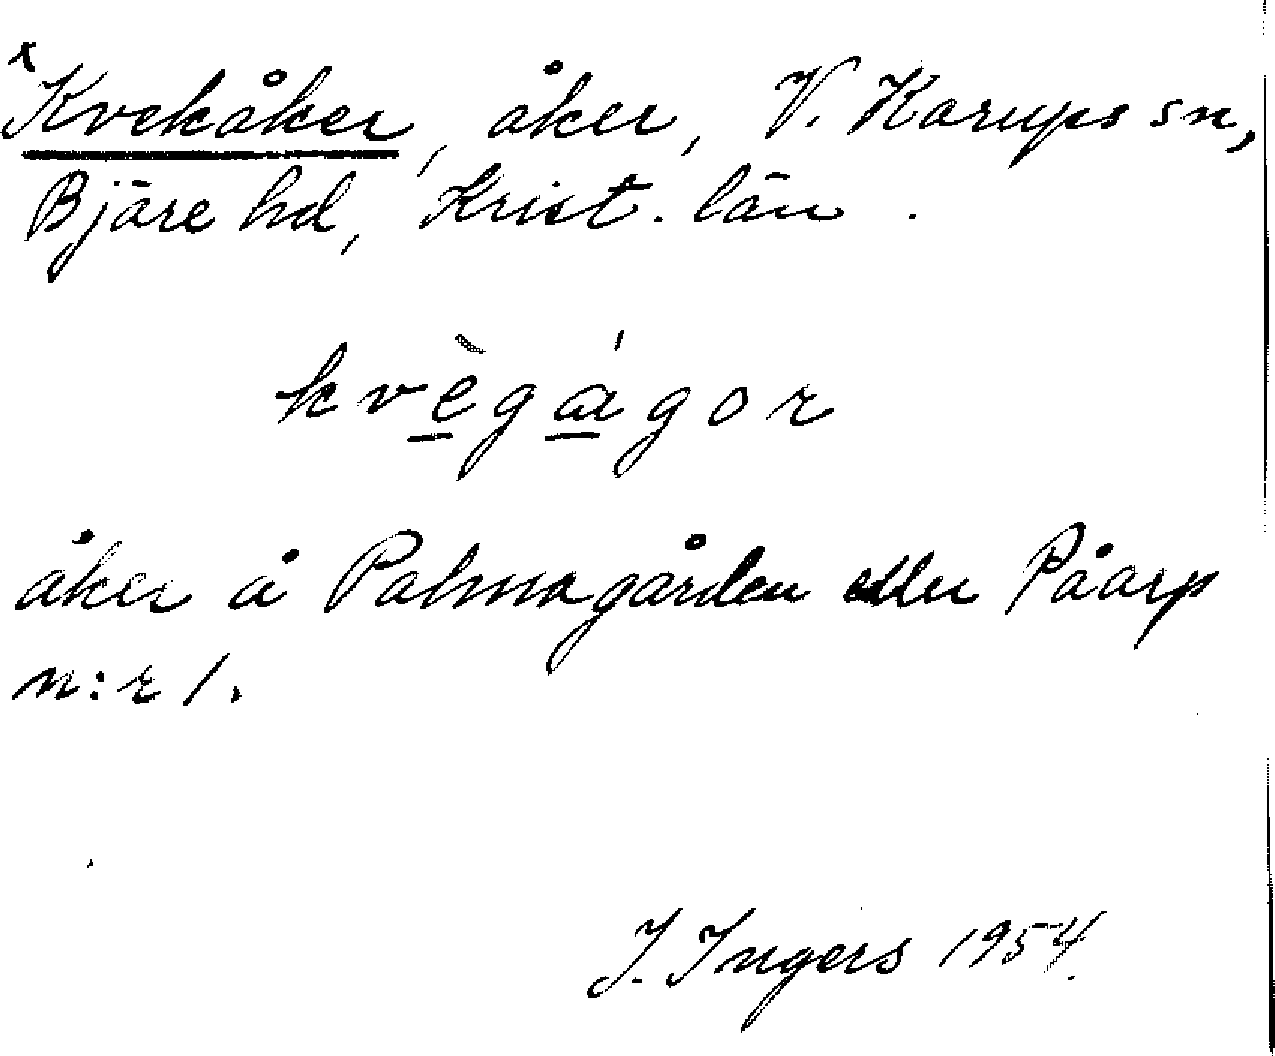 x Kvekåker, åker, V. Karups sn,
Bjäre hd, Krist. län.
kvègágor
åker å Palmagården eller Påarp
n:r 1.
J. Ingers 1954.